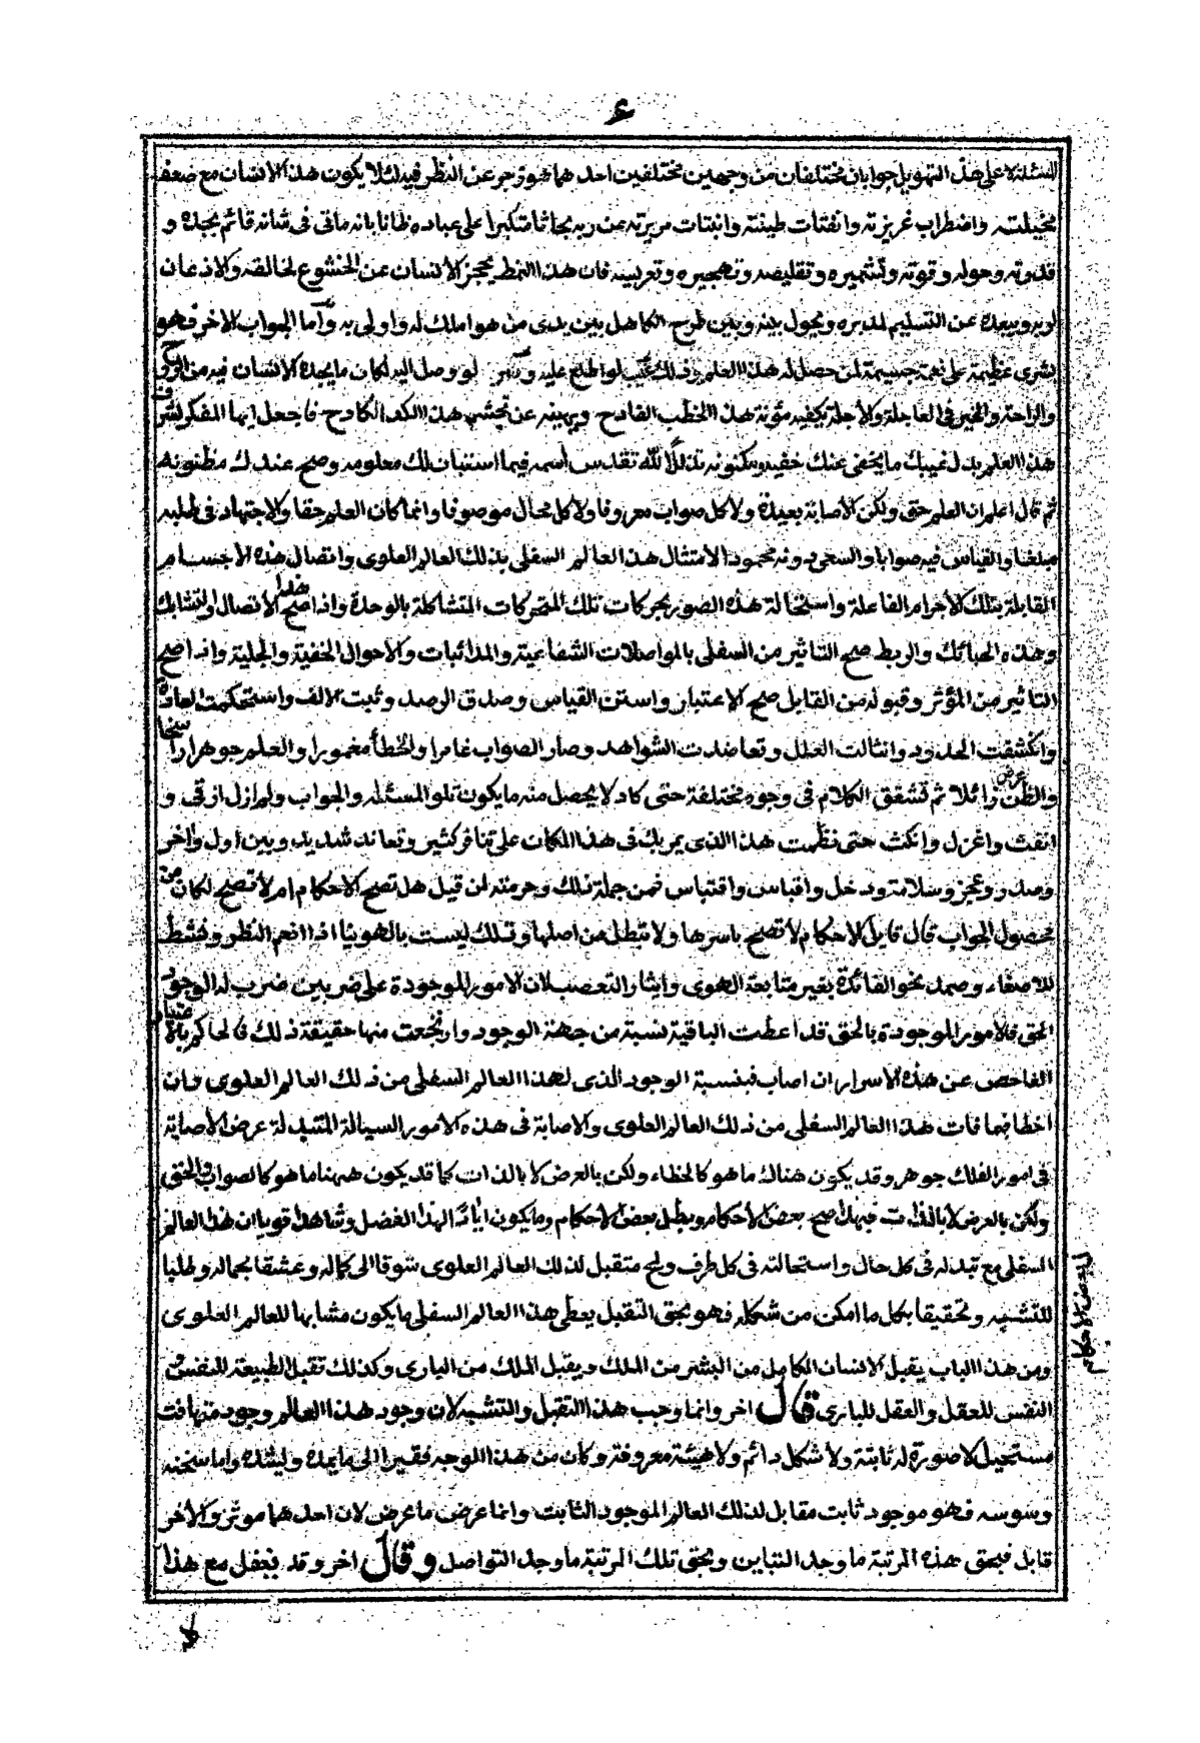 ٤
المسئلة على هذا التهويل جوابان مختلفان من وجهين مختلفين احدهما هو زجر عن النظر فيه لئلا يكون هذا الانسان مع ضعف
مخيلته واضطراب غريزته وانفتات طينته وانبتات مريرته عن ربه بحاثا متكبرا على عباده ظانا بانه ماتى فى شانه قائم بجده و
قدرته وحوله وقوته وتشميره وتقليصه وتهجيره وتعريسه فان هذا النمط يحجز الانسان عن الخشوع لخالقه والاذعان
لربه ويبعده عن التسليم لمدبره ويحول بينه وبين طرح الكاهل بين يدى من هو املك له واولى به واما الجواب الاخر فهو
بشرى عظيمة على نعمة جسيمة لمن حصل له هذا العلم وذلك لو اطلع عليه و لو وصل اليه لكان ما يجده الانسان فيه من الروح
والراحة والخير فى العاجلة والآجلة يكفيه مؤنة هذا الخطب الفادح ويهينه عن تجشم هذا الكد الكادح فاجعل ايها المفكر لشرف
هذا العلم بدل عيبك ما يخفى عنك خفيه ومكنونه تذللا لله تقدس اسمه فيما استبان لك معلومه وصح عندك مظنونه
ثم قال اعلم ان العلم حق ولكن الاصابة بعيدة ولا كل صواب معروفا ولا كل محال موصوفا وانما كان العلم حقا والاجتهاد فى طلبه
مبلغا والقياس فيه صوابا والسعى دونه محمودا لامتثال هذا العالم السفلى بذلك العالم العلوى واتصال هذه الاجسام
القابلة بتلك الاجرام الفاعلة واستحالة هذه الصور بحركات تلك المحركات المتشاكلة بالوحدة واذا صح هذا الاتصال والتشابك
وهذه الحبائك والربط صح التاثير من السفلى بالمواصلات الشفاعية والمدائبات والاحوال الخفية والجلية واذا صح
التاثير من المؤثر وقبوله من القابل صح الاعتبار واستن القياس وصدق الرصد وثبت الالف واستحكمت العادة
وانكشفت الحدود وانثالت العلل وتعاضدت الشواهد وصار الصواب غامرا والخطأ مغمورا والعلم جوهرا راسخا
والظن عرضا زائلا ثم تشقق الكلام فى وجوه مختلفة حتى كاد لا يحصل منه ما يكون تلو المسئلة والجواب ولم ازل ارقى و
انفث واغزل وانكث حتى نظمت هذا الذى يمر بك فى هذا المكان على تنافر كثير وتعاند شديد وبين اول واخر
وصدر وعجز وسلامة ودخل واقباس واقتباس فمن جملة ذلك وحرمته لمن قيل هل تصح الاحكام ام لا تصح لكان من
محصول الجواب قال قايل الاحكام لا تصح باسرها ولا تبطل من اصلها وتلك ليست بالهوينا اذا انعم النظر ونشط
للاصغاء وصمد نحو الفائدة بغير متابعة الهوى وايثار التعصب لان الامور الموجودة على ضربين ضرب له الوجود
الحق فالامور الموجودة بالحق قد اعطت الباقية نسبة من جهة الوجود وارتجعت منها حقيقة ذلك فالحاكم باعتبار
الفاحص عن هذه الاسرار ان اصاب فبنسبة الوجود الذى لهذا العالم السفلى من ذلك العالم العلوى وان
اخطا فبما فات هذا العالم السفلى من ذلك العالم العلوى والاصابة فى هذه الامور السيالة المتبدلة عرض الاصابة
فى امور الفلك جوهر وقد يكون هناك ما هو كالخطاء ولكن بالعرض لا بالذات كما قد يكون ههنا ما هو كالصواب والحق
ولكن بالعرض لا بالذات فبهذا صح بعض الاحكام ويبطل بعض الاحكام وما يكون لهذا الفضل وشاهدا قويا ان هذا العالم
السفلى مع تبدله فى كل حال واستحالته فى كل طرف ولمح متقبل لذلك العالم العلوى شوقا الى كماله وعشقا بجماله وطلبا
للتشبه وتحقيقا بكل ما امكن من شكله فهو بحق التقبل يعطى هذا العالم السفلى ما يكون مشابها للعالم العلوى
ومن هذا الباب يقبل الانسان الكامل من البشر من الملك ويقبل الملك من البارى وكذلك تقبل الطبيعة للنفس و
النفس للعقل والعقل للبارى قال اخر وانما وجب هذا التقبل والتشبه لان وجود هذا العالم وجود متهافت
مستحيل لا صورة له ثابتة ولا شكل دائم ولا هيئة معروفة وكان من هذا الوجه فقيرا الى ما يمده ويشده واما سنخه
وسوسه فهو موجود ثابت مقابل لذلك العالم الموجود الثابت وانما عرض ما عرض لان احدهما موثر والاخر
قابل فبحق هذه المرتبة ما وجد التباين وبحق تلك المرتبة ما وجد التواصل وقال اخر وقد يغفل مع هذا
لا